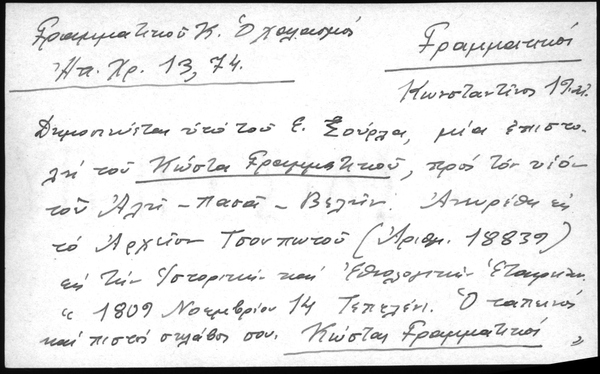 Γραμματικοῦ Κ. Ὁ χαλασμός
Ἠπ. Χρ. 13, 74.
Γραμματικοί
Κωνσταντῖνος 19
Δημοσιεύεται ὑπό τοῦ Ε. Σούρλα, μία ἐπιστο-
λή τοῦ Κώστα Γραμματικοῦ, πρός τόν υἱόν
τοῦ Ἀλῆ-πασᾶ-Βελῆν.
τό Ἀρχεῖον (Ἀριθμ. 18839)
τήν Ἱστορικήν καί Ἐθνολογικήν Ἑταιρείαν
" 1809 Νοεμβρίου 14 Τεπελένι. Ὁ ταπεινός
καί πιστός σκλάβος σου. Κώστας Γραμματικοί "